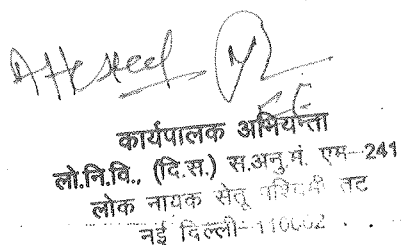 Attested
EE
कार्यपालक अभियन्ता
लो.नि.वि., (दि.स.) स.अनु.मं. एम-241
लोक नायक सेतू पश्चिमी तट
नई दिल्ली-110002